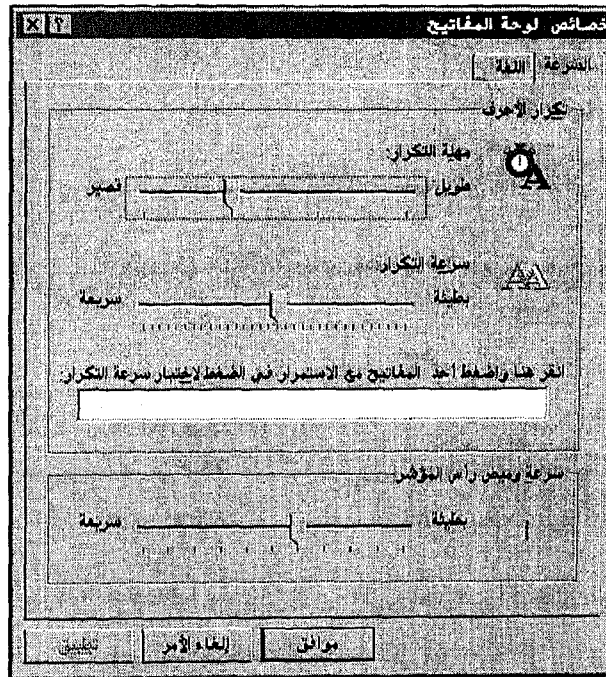 خصائص لوحة المفاتيح
السرعة اللغة
تكرار الأحرف
مهلة التكرار:
طويل قصير
سرعة التكرار:
بطيئة سريعة
انقر هنا واضغط أحد المفاتيح مع الاستمرار في الضغط لاختبار سرعة التكرار:
سرعة وميض رأس المؤشر
بطيئة سريعة
موافق إلغاء الأمر تطبيق